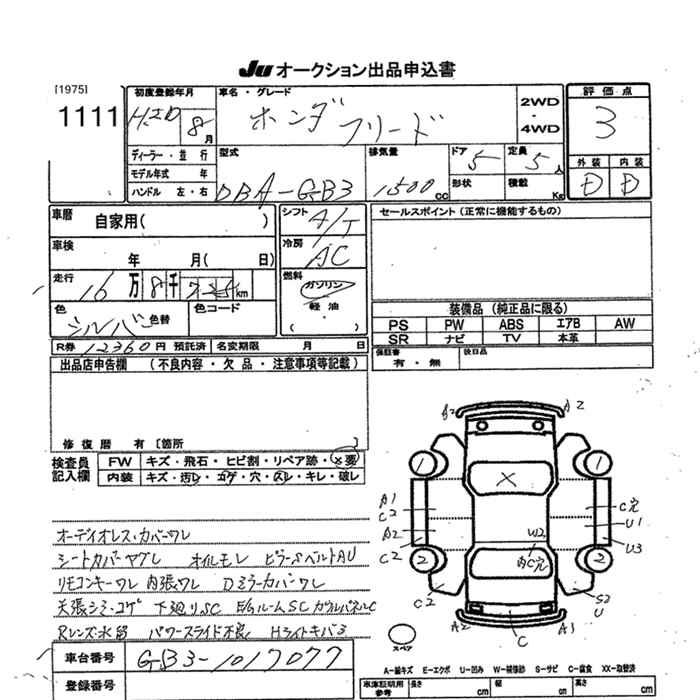 JU オークション出品申込書
[1975]
1111
初度登録年月 H.20 8月
車名・グレード ホンダ フリード
2WD・4WD
評価点 3
ディーラー・並行
モデル年式 年
ハンドル 左・右
型式 DBA-GB3
排気量 1500 cc
ドア 5
定員 5人
形状
積載 Kg
外装 D
内装 D
車歴 自家用( )
シフト A/T
セールスポイント(正常に機能するもの)
車検 年 月(日)
冷房 AC
走行 16万8千725km
燃料 ガソリン 軽油・( )
色 シルバ 色替
色コード
装備品 (純正品に限る)
PS PW ABS エアB AW
SR ナビ TV 本革
R券 12360円 預託済 名変期限 月 日
保証書 有・無
後日品
出品店申告欄 (不良内容・欠品・注意事項等記載)
修復歴 有[箇所 ]
検査員記入欄
FW キズ・飛石・ヒビ割・リペア跡・×要
内装 キズ・汚レ・コゲ・穴・スレ・キレ・破レ
オーディオレス・カバーワレ
シートカバーヤブレ オイルモレ ピラーSベルトAU
リモコンキーワレ 内張ワレ Dミラーカバーワレ
天張シミ・コゲ 下廻りSC E/GルームSC カウルパネルC
Rレンズ水留 パワースライド不良 Hライトキバミ
A2 A2
1 1
X
A1
C2
C穴
A2
U1
W2
C2
U3
2 2
内C穴
C2
S2
U
A2 C A1
スペア
車台番号 GB3-1017077
A-線キズ E-エクボ U-凹み W-補修跡 S-サビ C-腐食 XX-取替済
登録番号
車庫証明用参考 長さ cm 幅 cm 高さ cm